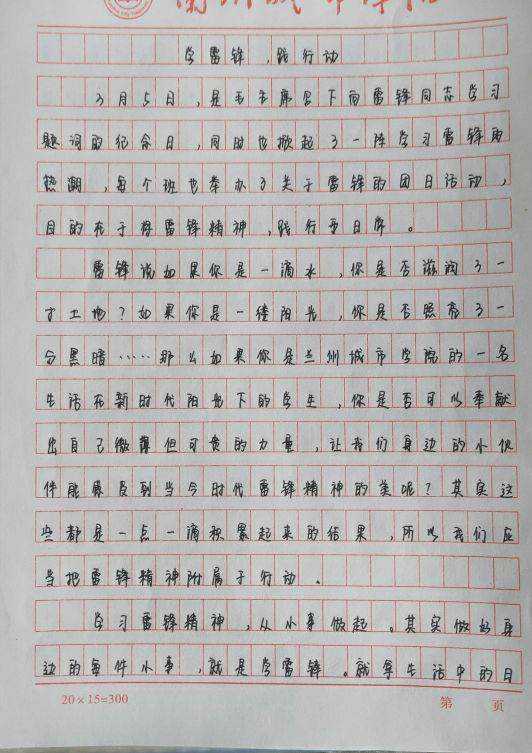 学雷锋，践行动
3月5日，是毛主席写下向雷锋同志学习
题词的纪念日，同时也掀起了一阵学习雷锋的
热潮，每个班也举办了关于雷锋的团日活动，
目的在于将雷锋精神，践行至日常。
雷锋说如果你是一滴水，你是否滋润了一
寸土地？如果你是一缕阳光，你是否照亮了一
分黑暗……那么如果你是兰州城市学院的一名
生活在新时代阳光下的学生，你是否可以奉献
出自己微薄但可贵的力量，让我们身边的小伙
伴能感受到当今时代雷锋精神的美呢？其实这
些都是一点一滴积累起来的结果，所以我们应
当把雷锋精神附属于行动．
学习雷锋精神，从小事做起。其实做好身
边的每件小事，就是学雷锋。就拿生活中的日
20×15=300 第 页